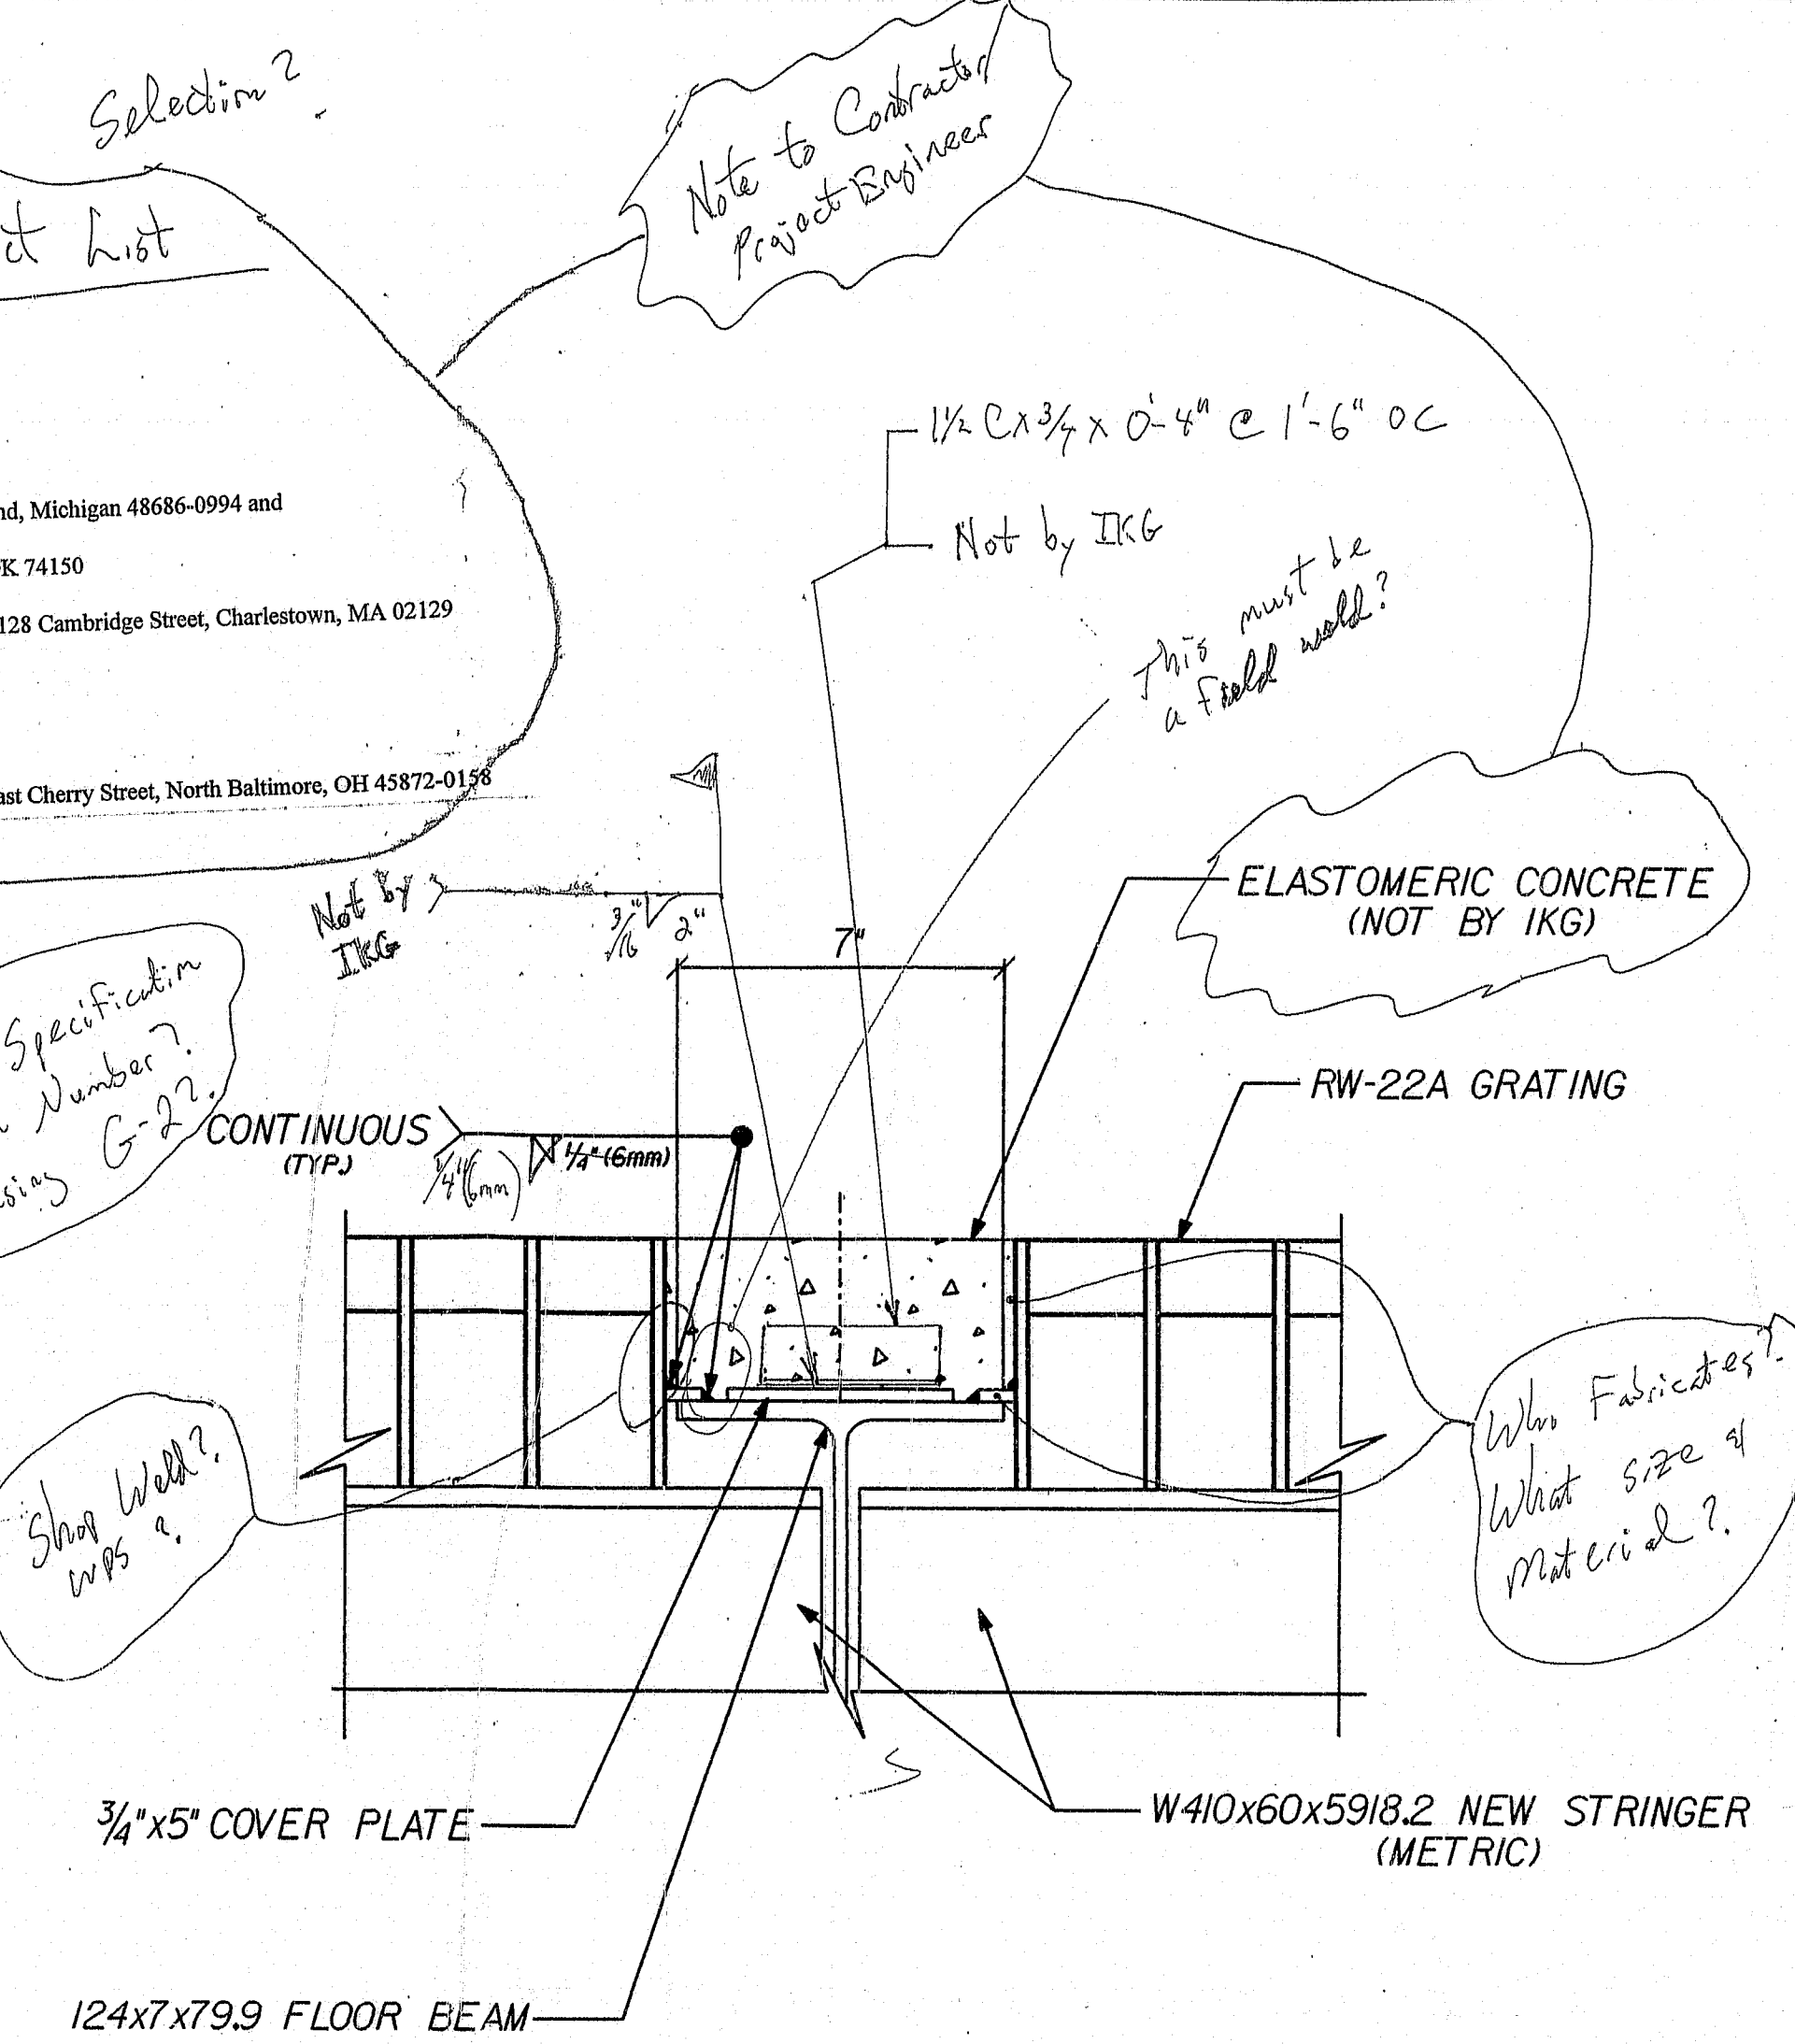 Selection?
ct List
Note to Contractor/
Project Engineer
nd, Michigan 48686-0994 and
K 74150
128 Cambridge Street, Charlestown, MA 02129
ast Cherry Street, North Baltimore, OH 45872-0158
1½ C x ¾ x 0'-4" @ 1'-6" OC
Not by IKG
This must be
a field weld?
Not by
IKG
3/16" 2"
7"
ELASTOMERIC CONCRETE
(NOT BY IKG)
Specification
Number?
sing G-2?
CONTINUOUS
(TYP.)
¼" (6mm)
¼" (6mm)
RW-22A GRATING
Shop Weld?
WPS?
Who Fabricates?
What size &
Material?
¾"x5" COVER PLATE
W410x60x5918.2 NEW STRINGER
(METRIC)
I24x7x79.9 FLOOR BEAM
S